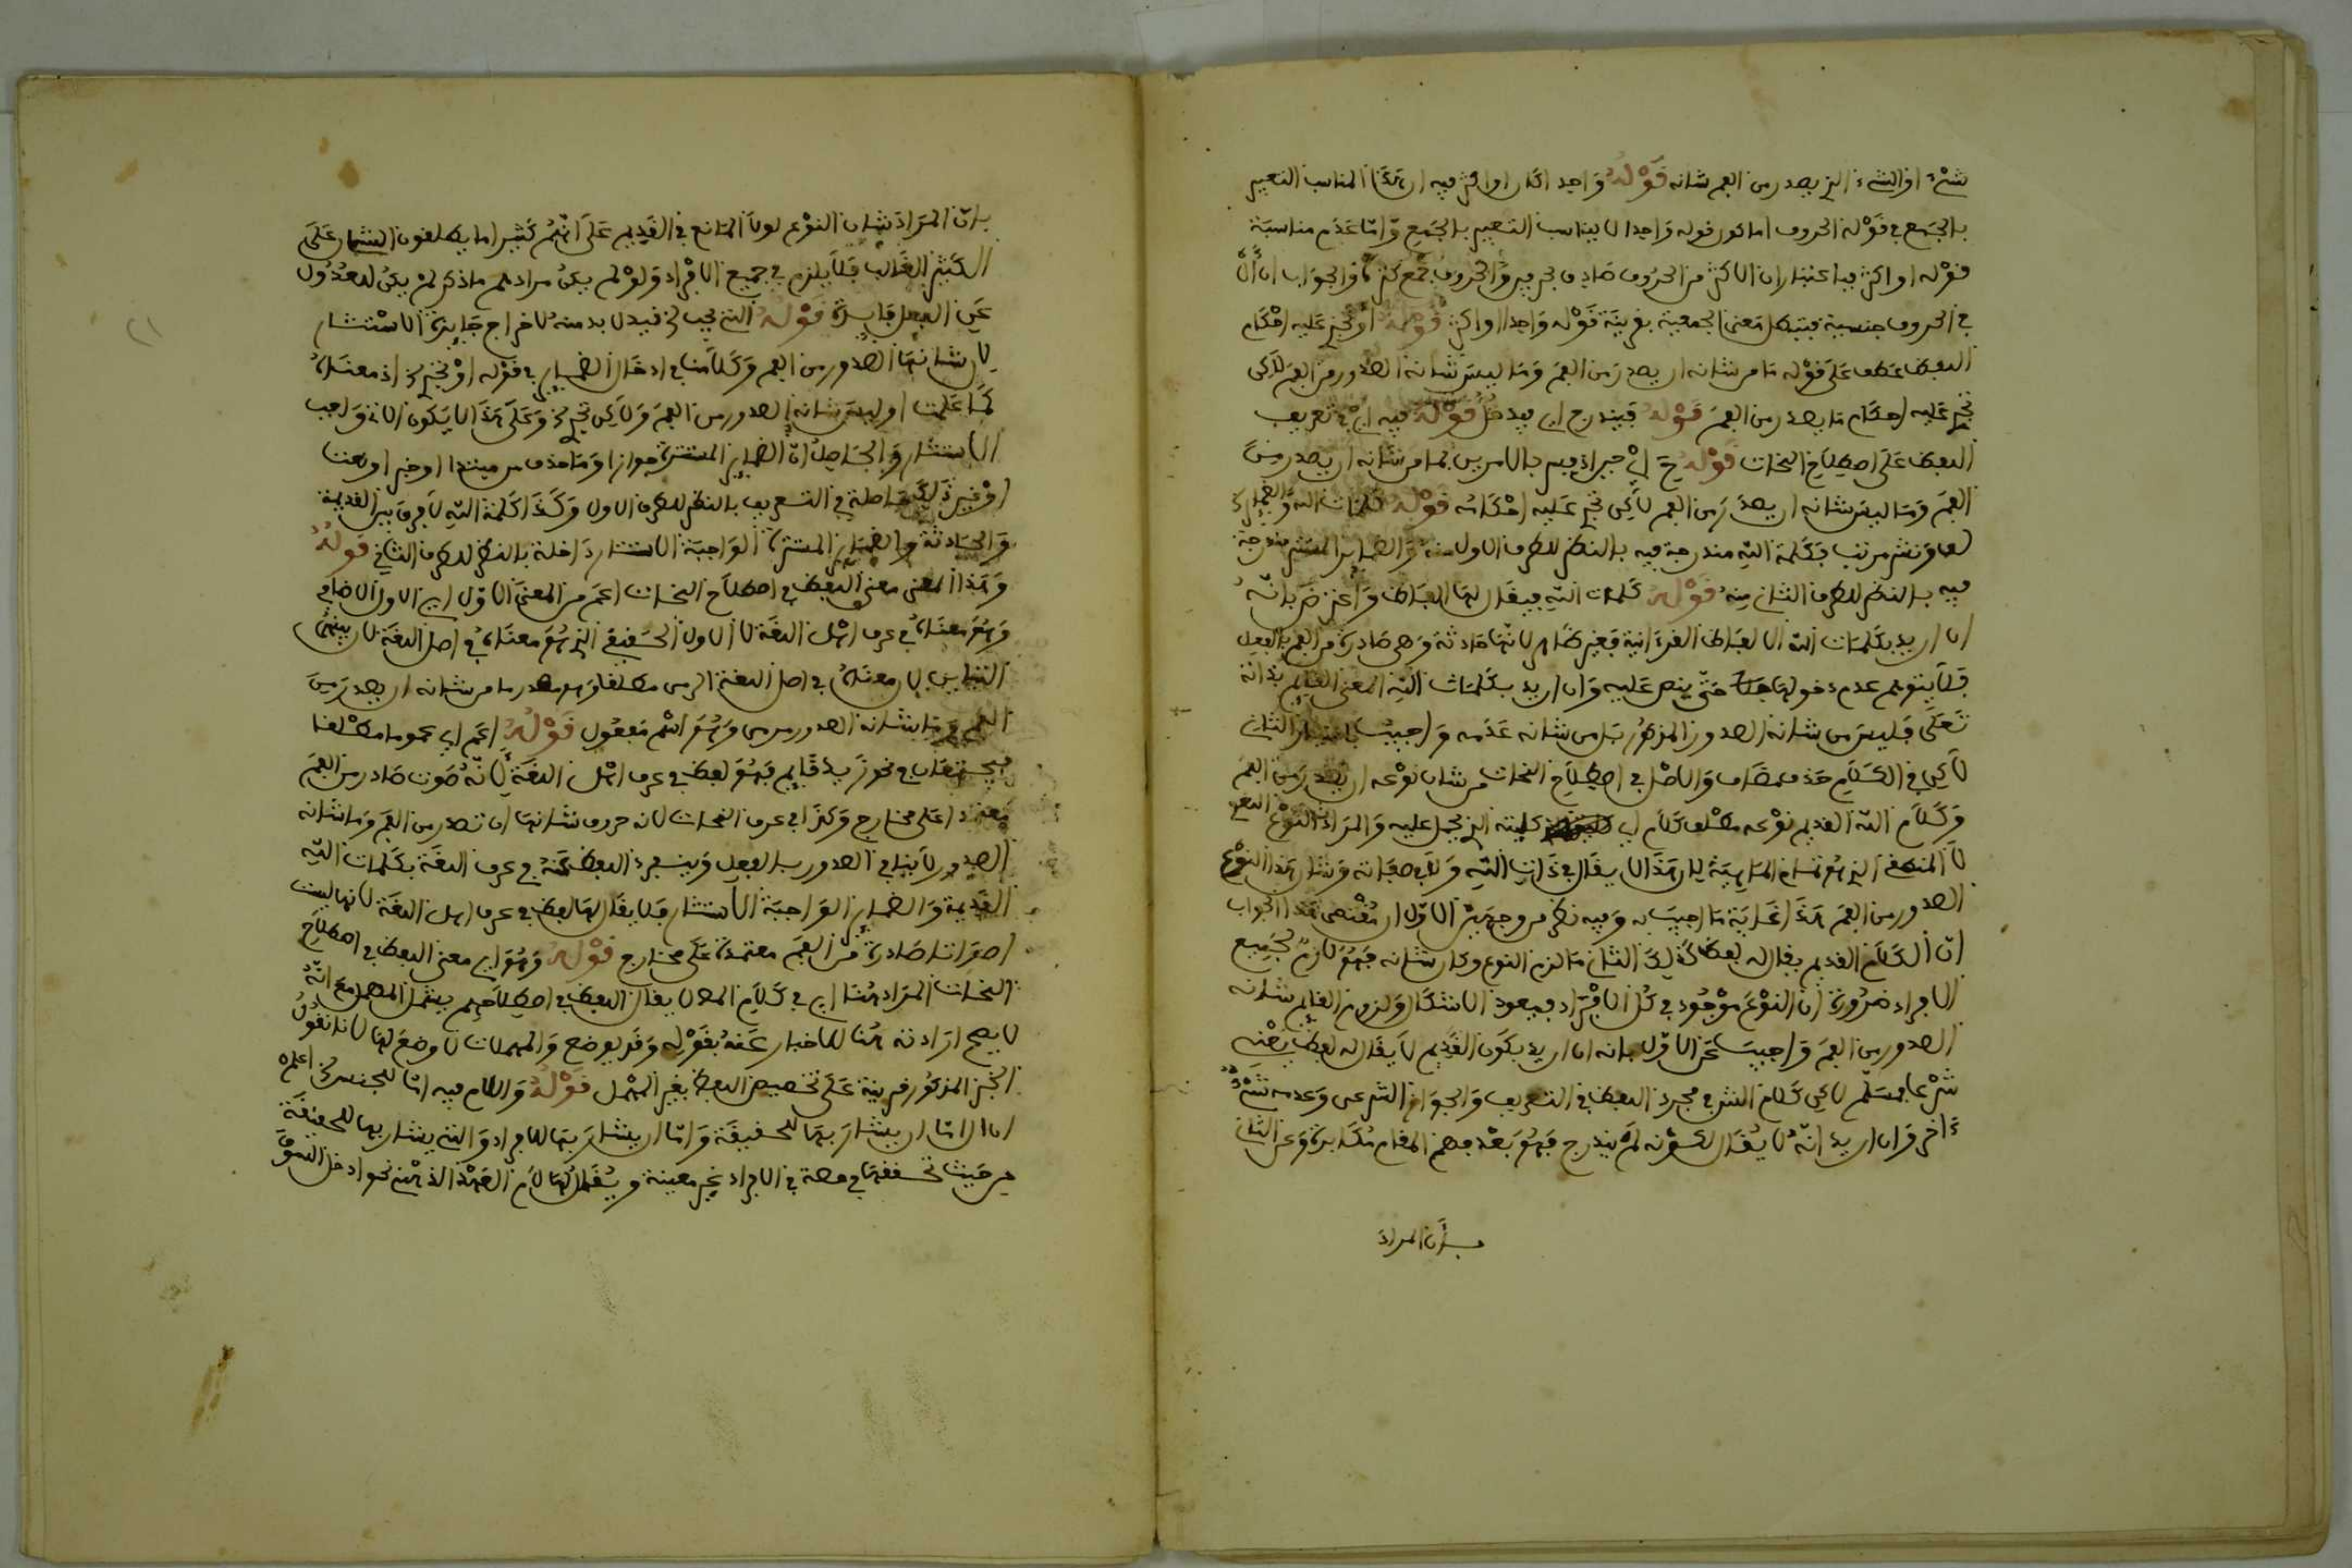 شيء او الشيء الذي يصدر من الفم شانه قَوْلُهُ وَاحِد اكان او اكثر فيه ان هَذَا المناسب التعبير
بالجَمع في قَوْله الحروف اما كون قوله وَاحِدا لا يناسب التعبير بالجَمع وَامّا عَدَم مناسبَة
قوْله او اكثر فباعتبار ان الاكثر من الحرُوف صَادِق بحرفين وَالحروف جَمْع كثرة وَالجوَاب ان أل
في الحروف جنسية فتبطل مَعنى الجمعية بقرينَة قَوْله وَاحِدا او اكثر قَوْلُهُ أوْ تجري عَليه احْكَام
اللفظ عطف عَلَى قوْله مَا من شانه ان يصدرَ من الفمِ وَمَا ليسَ شانه الصدور من الفم لَاكِن
تجري عَليه احكَام مَا يصدر من الفمِ قَوْلُهُ فيندرج اي فيدخُلُ قَوْلُهُ فيه ايْ في تعريف
اللفظ عَلَى اصطِلَاحِ النحات قَوْلُهُ حَ ايْ حين اذ فسر بالامرين بما من شَانه ان يصدر مِنَ
الفمِ وَمَا ليسَ شانه ان يصدَرَ من الفمِ لَاكِن تجري عَليه احْكَامُه قَوْلُهُ كَلمات الله وَالضمائر
لف وَنشر مرتب فَكَلمة اللّه مندرجة فيه بالنظر للطرف الاول منه وَالضمائر المستتر مندرجة
فيه بالنظر للطرف الثاني مِنهُ قَوْلُهُ كلمات اللّه فيقال لهَا الفاظ وَأعْترض بانّهُ
ان اريد بكلمَات اللّه الالفاظ القرءانية فغير ظَاهر لانّهَا حادثة وَهي صَادرة من الفم بالفعل
فَلَا يتوهم عدم دخولهَا حتّى ينص عَليه وَان اريد بكلمات اللّه المعنى القائم بذاته
تَعَلَى فَليسَ من شانه الصدور المذكُور بَل من شانه عَدمه وَاجيبَ باختيار الثاني
لَاكِن في الكَلَام حَذف مضَاف وَالاصْل في اصطلَاحِ النحات من شان نوْعه ان يصْدرَ من الفم
وَكَلَام اللّه القديم نوْعه مطْلق كلَام اي كليته الذي يحمل عليه وَالمرَاد بالنوْع اللغوي
لَا المنطقي الذي هُوَ تمام المَاهيَة لان هَذَا لا يقال في ذَاتِ اللّه وَلَا في صفاته وَشان هَذا النوْع
الصدور من الفمِ هَذَا غايَة مَا اجيبَ به وَفيه نظر من وجهَين الاوّل ان مُقْتضى هَذا الجواب
انّ الكَلَامَ القديم يقال له لفظ كَذلِكَ الثاني مَا لزم النوع وكان شانه فَهُوَ لازمٌ لجَميع
الافراد ضَرُورة ان النوْعَ موْجُود في كُل الافْرَاد فيعودُ الاشكَال وَلزوم القائم شانه
الصدور من الفمِ وَاجيبَ عَن الاوّل بانه ان اريد بكَون القَدِيمِ لَا يقَال له لفظ يَعْني
شرْعا فمسَلّم لَاكِن كلَام الشرح في مجرد اللفظ في التعريف وَالجوَاز الشرعي وَعدمه شيْءٌ
ءاخر وَان اريد انّه لَا يُقَال لكوْنه لمْ يندرج فَهُوَ بَعْد فهم المقام مُكَابرة وَعن الثاني
بأن المراد
بانّ المرَادَ شان النوْع لولَا المَانع في القديم عَلَى انّهُم كَثيرا ما يطلقون الشان عَلَى
الكثير الغَالب فَلَا يلزم في جميع الافرَاد وَلوْ لم يكُن مرادهم ماذكر لمْ يكُن للعُدُول
عَنِ الفعل فَائِدة قَوْلُهُ التي تجب الخ قيد لا بد منه لاخراج جَايزة الاسْتتار
لان شانهَا الصدور من الفم وَكَلَامنا في ادخَال الضمائر في قوْله أوْ تجري الخ اذ معنَاهُ
كمَا عَلمت او ليسَ شانه الصدور من الفمِ وَلَاكِن تجري الخ وَعَلَى هَذَا لا يكون الا في وَاجب
الاستتار وَالحَاصِلُ انّ الضمائر المستترة جوازا وَمَا حذف من مبتدا او خبر او نعت
أوْ غير ذَلِكَ داخلة في التعريف بالنظر للطرف الاول وَكَذَا كلمة اللّه لَا فرق بين القديمة
وَالحَادثة وَالضمائر المستترة الوَاجبَة الاستتار دَاخلة بالنظر للطرف الثاني قَولُهُ
وَهَذَا المعنى معنى اللفظ في اصطلَاحِ النحات اعَم من المعنى الاوّل اي الاول الاضافي
وَهُوَ معنَاهُ في عرف اهْل اللغَة لَا الاول الحَقيقي الذي هُوَ معنَاهُ في اصل اللغَة لان بينهُمَا
التبايُن لان معنَاهُ في اصل اللغة الرمي مطلقا وَهو مصدر ما من شانه ان يصدرَ مِنَ
الفمِ وَمَا شانه الصدور مرمي وَهُوَ اسْم مَفعُول قَوْلُهُ اعَم اي عموما مطْلقا
فيجتمعان في نحو زَيد قايم فَهُوَ لفظ في عرف اهْل اللغَة لانّهُ صَوت صَادر من الفمِ
مُعتمدا على مخارج وَكذا في عرف النحات لانه حروف شانهَا ان تصدر من الفم وَما شانه
الصدور لَا ينافي الصدور بالفعِل وَينفردُ اللفظ عَنهُ في عرف اللغَة بكَلمات اللّه
القَديمة وَالضمائر الوَاجبَة الاستتار فلَا يقَال لهَا لفظ في عرف اهل اللغَة لانها ليست
اصوَاتا صَادرة من الفمِ معتمدة عَلَى مخارج قَوْلُهُ وَهُوَ اي معنى اللفظ في اصطلَاحِ
النحات المرَاد هُنا اي في كَلَامِ المص لا يقال اللفظ في اصطِلَاحِهِم يشمل المهمل مع انّهُ
لا يصح ارَادته هُنا للاخبار عَنهُ بقَوْلِه وَقد يوضع وَالمهملات لَا وضعَ لهَا لانا نقُولُ
الخبر المذكور قرينة عَلَى تخصيص اللفظ بغير المهْمل قَوْلُهُ وَاللام فيه امّا للجنس الخ اعلم
ان ال امّا ان يشارَ بهَا للحقيقَة وَامّا ان يشارَ بهَا للافرادِ وَالتي يشار بها للحقيقَة
من حَيث تحققهَا في حصة في الافراد غير معينة وَيُقَال لهَا لَام العَهْد الذهْني نحو ادخل السُوق